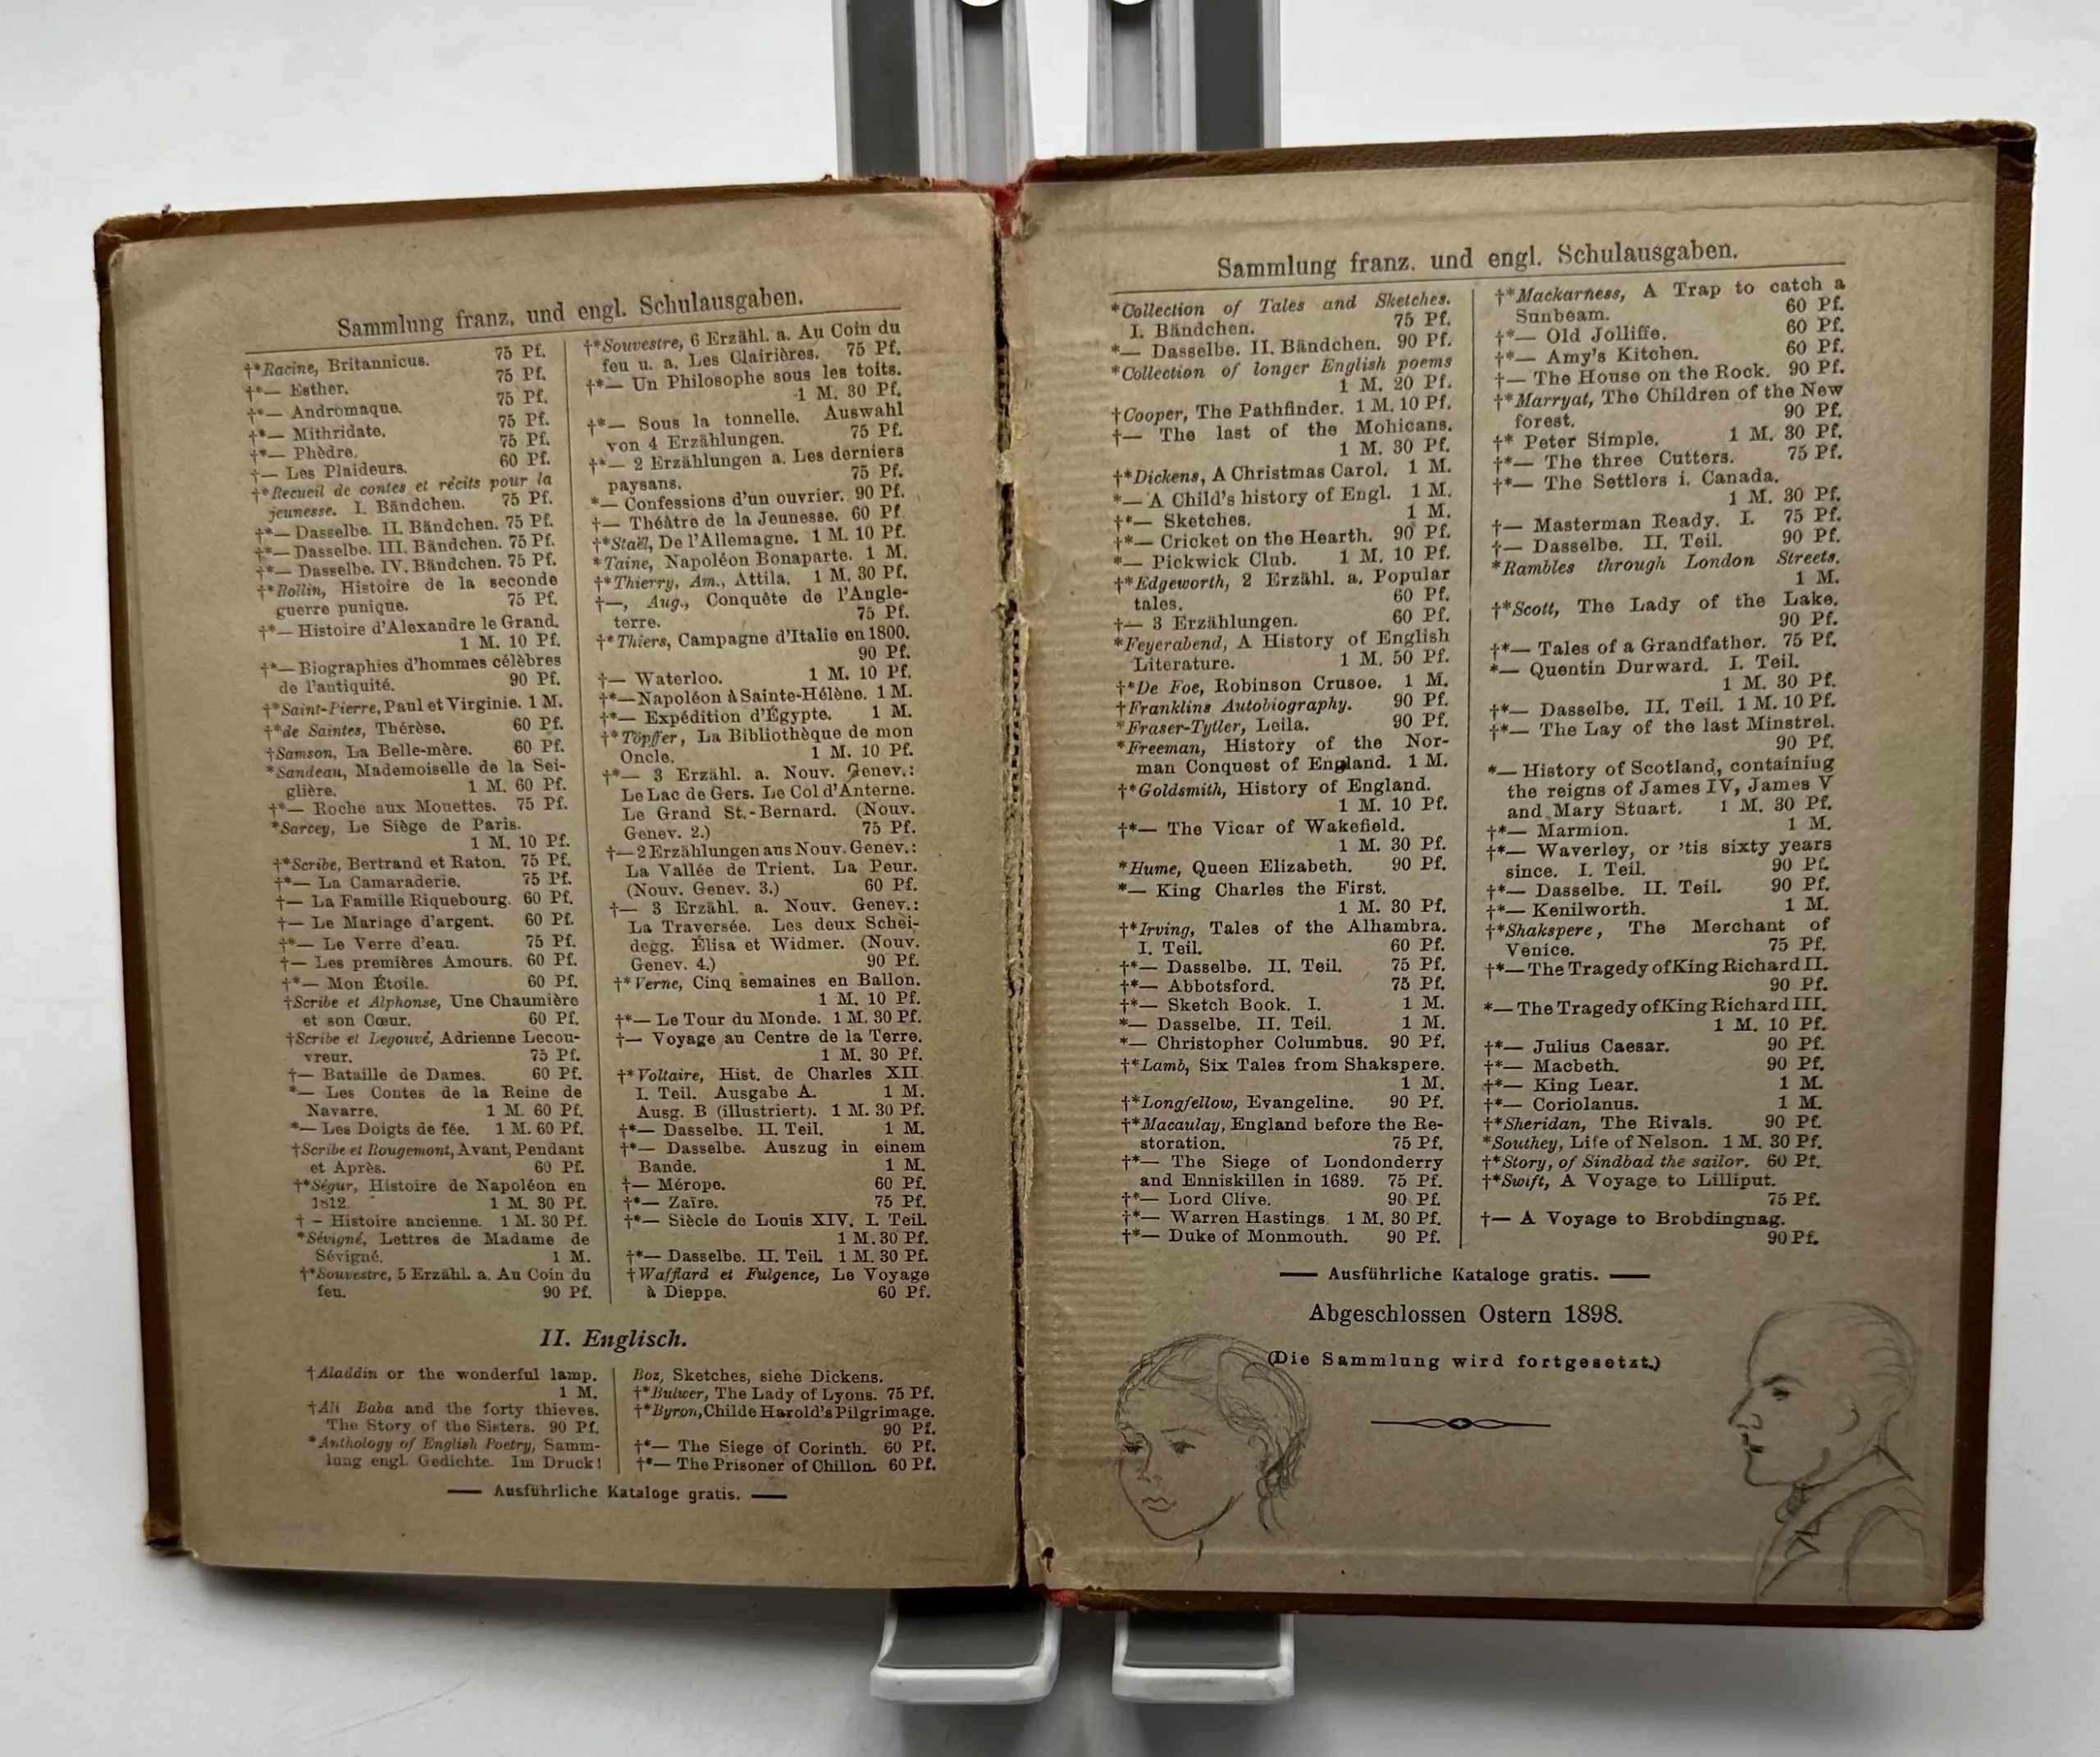 Sammlung franz. und engl. Schulausgaben.
†*Racine, Britannicus. 75 Pf.
†*— Esther. 75 Pf.
†*— Andromaque. 75 Pf.
†*— Mithridate. 75 Pf.
†*— Phèdre. 75 Pf.
†— Les Plaideurs. 60 Pf.
†*Recueil de contes et récits pour la
jeunesse. I. Bändchen. 75 Pf.
†*— Dasselbe. II. Bändchen. 75 Pf.
†*— Dasselbe. III. Bändchen. 75 Pf.
†*— Dasselbe. IV. Bändchen. 75 Pf.
†*Rollin, Histoire de la seconde
guerre punique. 75 Pf.
†*— Histoire d'Alexandre le Grand.
1 M. 10 Pf.
†*— Biographies d'hommes célèbres
de l'antiquité. 90 Pf.
†*Saint-Pierre, Paul et Virginie. 1 M.
†*de Saintes, Thérèse. 60 Pf.
†Samson, La Belle-mère. 60 Pf.
*Sandeau, Mademoiselle de la Sei-
glière. 1 M. 60 Pf.
†*— Roche aux Mouettes. 75 Pf.
*Sarcey, Le Siège de Paris.
1 M. 10 Pf.
†*Scribe, Bertrand et Raton. 75 Pf.
†*— La Camaraderie. 75 Pf.
†— La Famille Riquebourg. 60 Pf.
†— Le Mariage d'argent. 60 Pf.
†*— Le Verre d'eau. 75 Pf.
†— Les premières Amours. 60 Pf.
†*— Mon Étoile. 60 Pf.
†Scribe et Alphonse, Une Chaumière
et son Cœur. 60 Pf.
†Scribe et Legouvé, Adrienne Lecou-
vreur. 75 Pf.
†— Bataille de Dames. 60 Pf.
*— Les Contes de la Reine de
Navarre. 1 M. 60 Pf.
*— Les Doigts de fée. 1 M. 60 Pf.
†Scribe et Rougemont, Avant, Pendant
et Après. 60 Pf.
†*Ségur, Histoire de Napoléon en
1812. 1 M. 30 Pf.
† – Histoire ancienne. 1 M. 30 Pf.
*Sévigné, Lettres de Madame de
Sévigné. 1 M.
†*Souvestre, 5 Erzähl. a. Au Coin du
feu. 90 Pf.
†*Souvestre, 6 Erzähl. a. Au Coin du
feu u. a. Les Clairières. 75 Pf.
†*— Un Philosophe sous les toits.
1 M. 30 Pf.
†*— Sous la tonnelle. Auswahl
von 4 Erzählungen. 75 Pf.
†*— 2 Erzählungen a. Les derniers
paysans. 75 Pf.
*— Confessions d'un ouvrier. 90 Pf.
†— Théâtre de la Jeunesse. 60 Pf.
†*Staël, De l'Allemagne. 1 M. 10 Pf.
*Taine, Napoléon Bonaparte. 1 M.
†*Thierry, Am., Attila. 1 M. 30 Pf.
†—, Aug., Conquête de l'Angle-
terre. 75 Pf.
†*Thiers, Campagne d'Italie en 1800.
90 Pf.
†— Waterloo. 1 M. 10 Pf.
†*—Napoléon à Sainte-Hélène. 1 M.
†*— Expédition d'Égypte. 1 M.
†*Töpffer, La Bibliothèque de mon
Oncle. 1 M. 10 Pf.
†*— 3 Erzähl. a. Nouv. Genev.:
Le Lac de Gers. Le Col d'Anterne.
Le Grand St.-Bernard. (Nouv.
Genev. 2.) 75 Pf.
†—2 Erzählungen aus Nouv. Genev.:
La Vallée de Trient. La Peur.
(Nouv. Genev. 3.) 60 Pf.
†— 3 Erzähl. a. Nouv. Genev.:
La Traversée. Les deux Schei-
degg. Élisa et Widmer. (Nouv.
Genev. 4.) 90 Pf.
†*Verne, Cinq semaines en Ballon.
1 M. 10 Pf.
†*— Le Tour du Monde. 1 M. 30 Pf.
†— Voyage au Centre de la Terre.
1 M. 30 Pf.
†*Voltaire, Hist. de Charles XII.
I. Teil. Ausgabe A. 1 M.
Ausg. B (illustriert). 1 M. 30 Pf.
†*— Dasselbe. II. Teil. 1 M.
†*— Dasselbe. Auszug in einem
Bande. 1 M.
†— Mérope. 60 Pf.
†*— Zaïre. 75 Pf.
†*— Siècle de Louis XIV. I. Teil.
1 M. 30 Pf.
†*— Dasselbe. II. Teil. 1 M. 30 Pf.
†Wafflard et Fulgence, Le Voyage
à Dieppe. 60 Pf.
II. Englisch.
†Aladdin or the wonderful lamp.
1 M.
†Ali Baba and the forty thieves.
The Story of the Sisters. 90 Pf.
*Anthology of English Poetry, Samm-
lung engl. Gedichte. Im Druck!
Boz, Sketches, siehe Dickens.
†*Bulwer, The Lady of Lyons. 75 Pf.
†*Byron, Childe Harold's Pilgrimage.
90 Pf.
†*— The Siege of Corinth. 60 Pf.
†*— The Prisoner of Chillon. 60 Pf.
— Ausführliche Kataloge gratis. —
Sammlung franz. und engl. Schulausgaben.
*Collection of Tales and Sketches.
I. Bändchen. 75 Pf.
*— Dasselbe. II. Bändchen. 90 Pf.
*Collection of longer English poems
1 M. 20 Pf.
†Cooper, The Pathfinder. 1 M. 10 Pf.
†— The last of the Mohicans.
1 M. 30 Pf.
†*Dickens, A Christmas Carol. 1 M.
*— A Child's history of Engl. 1 M.
†*— Sketches. 1 M.
†*— Cricket on the Hearth. 90 Pf.
*— Pickwick Club. 1 M. 10 Pf.
†*Edgeworth, 2 Erzähl. a. Popular
tales. 60 Pf.
†— 3 Erzählungen. 60 Pf.
*Feyerabend, A History of English
Literature. 1 M. 50 Pf.
†*De Foe, Robinson Crusoe. 1 M.
†Franklins Autobiography. 90 Pf.
*Fraser-Tytler, Leila. 90 Pf.
*Freeman, History of the Nor-
man Conquest of England. 1 M.
†*Goldsmith, History of England.
1 M. 10 Pf.
†*— The Vicar of Wakefield.
1 M. 30 Pf.
*Hume, Queen Elizabeth. 90 Pf.
*— King Charles the First.
1 M. 30 Pf.
†*Irving, Tales of the Alhambra.
I. Teil. 60 Pf.
†*— Dasselbe. II. Teil. 75 Pf.
†*— Abbotsford. 75 Pf.
†*— Sketch Book. I. 1 M.
*— Dasselbe. II. Teil. 1 M.
*— Christopher Columbus. 90 Pf.
†*Lamb, Six Tales from Shakspere.
1 M.
†*Longfellow, Evangeline. 90 Pf.
†*Macaulay, England before the Re-
storation. 75 Pf.
†*— The Siege of Londonderry
and Enniskillen in 1689. 75 Pf.
†*— Lord Clive. 90 Pf.
†*— Warren Hastings. 1 M. 30 Pf.
†*— Duke of Monmouth. 90 Pf.
†*Mackarness, A Trap to catch a
Sunbeam. 60 Pf.
†*— Old Jolliffe. 60 Pf.
†*— Amy's Kitchen. 60 Pf.
†— The House on the Rock. 90 Pf.
†*Marryat, The Children of the New
forest. 90 Pf.
†* Peter Simple. 1 M. 30 Pf.
†*— The three Cutters. 75 Pf.
†*— The Settlers i. Canada.
1 M. 30 Pf.
†— Masterman Ready. I. 75 Pf.
†— Dasselbe. II. Teil. 90 Pf.
*Rambles through London Streets.
1 M.
†*Scott, The Lady of the Lake.
90 Pf.
†*— Tales of a Grandfather. 75 Pf.
*— Quentin Durward. I. Teil.
1 M. 30 Pf.
†*— Dasselbe. II. Teil. 1 M. 10 Pf.
†*— The Lay of the last Minstrel.
90 Pf.
*— History of Scotland, containing
the reigns of James IV, James V
and Mary Stuart. 1 M. 30 Pf.
†*— Marmion. 1 M.
†*— Waverley, or 'tis sixty years
since. I. Teil. 90 Pf.
†*— Dasselbe. II. Teil. 90 Pf.
†*— Kenilworth. 1 M.
†*Shakspere, The Merchant of
Venice. 75 Pf.
†*—The Tragedy of King Richard II.
90 Pf.
*—The Tragedy of King Richard III.
1 M. 10 Pf.
†*— Julius Caesar. 90 Pf.
†*— Macbeth. 90 Pf.
†*— King Lear. 1 M.
†*— Coriolanus. 1 M.
†*Sheridan, The Rivals. 90 Pf.
*Southey, Life of Nelson. 1 M. 30 Pf.
†*Story, of Sindbad the sailor. 60 Pf.
†*Swift, A Voyage to Lilliput.
75 Pf.
†— A Voyage to Brobdingnag.
90 Pf.
— Ausführliche Kataloge gratis. —
Abgeschlossen Ostern 1898.
(Die Sammlung wird fortgesetzt.)